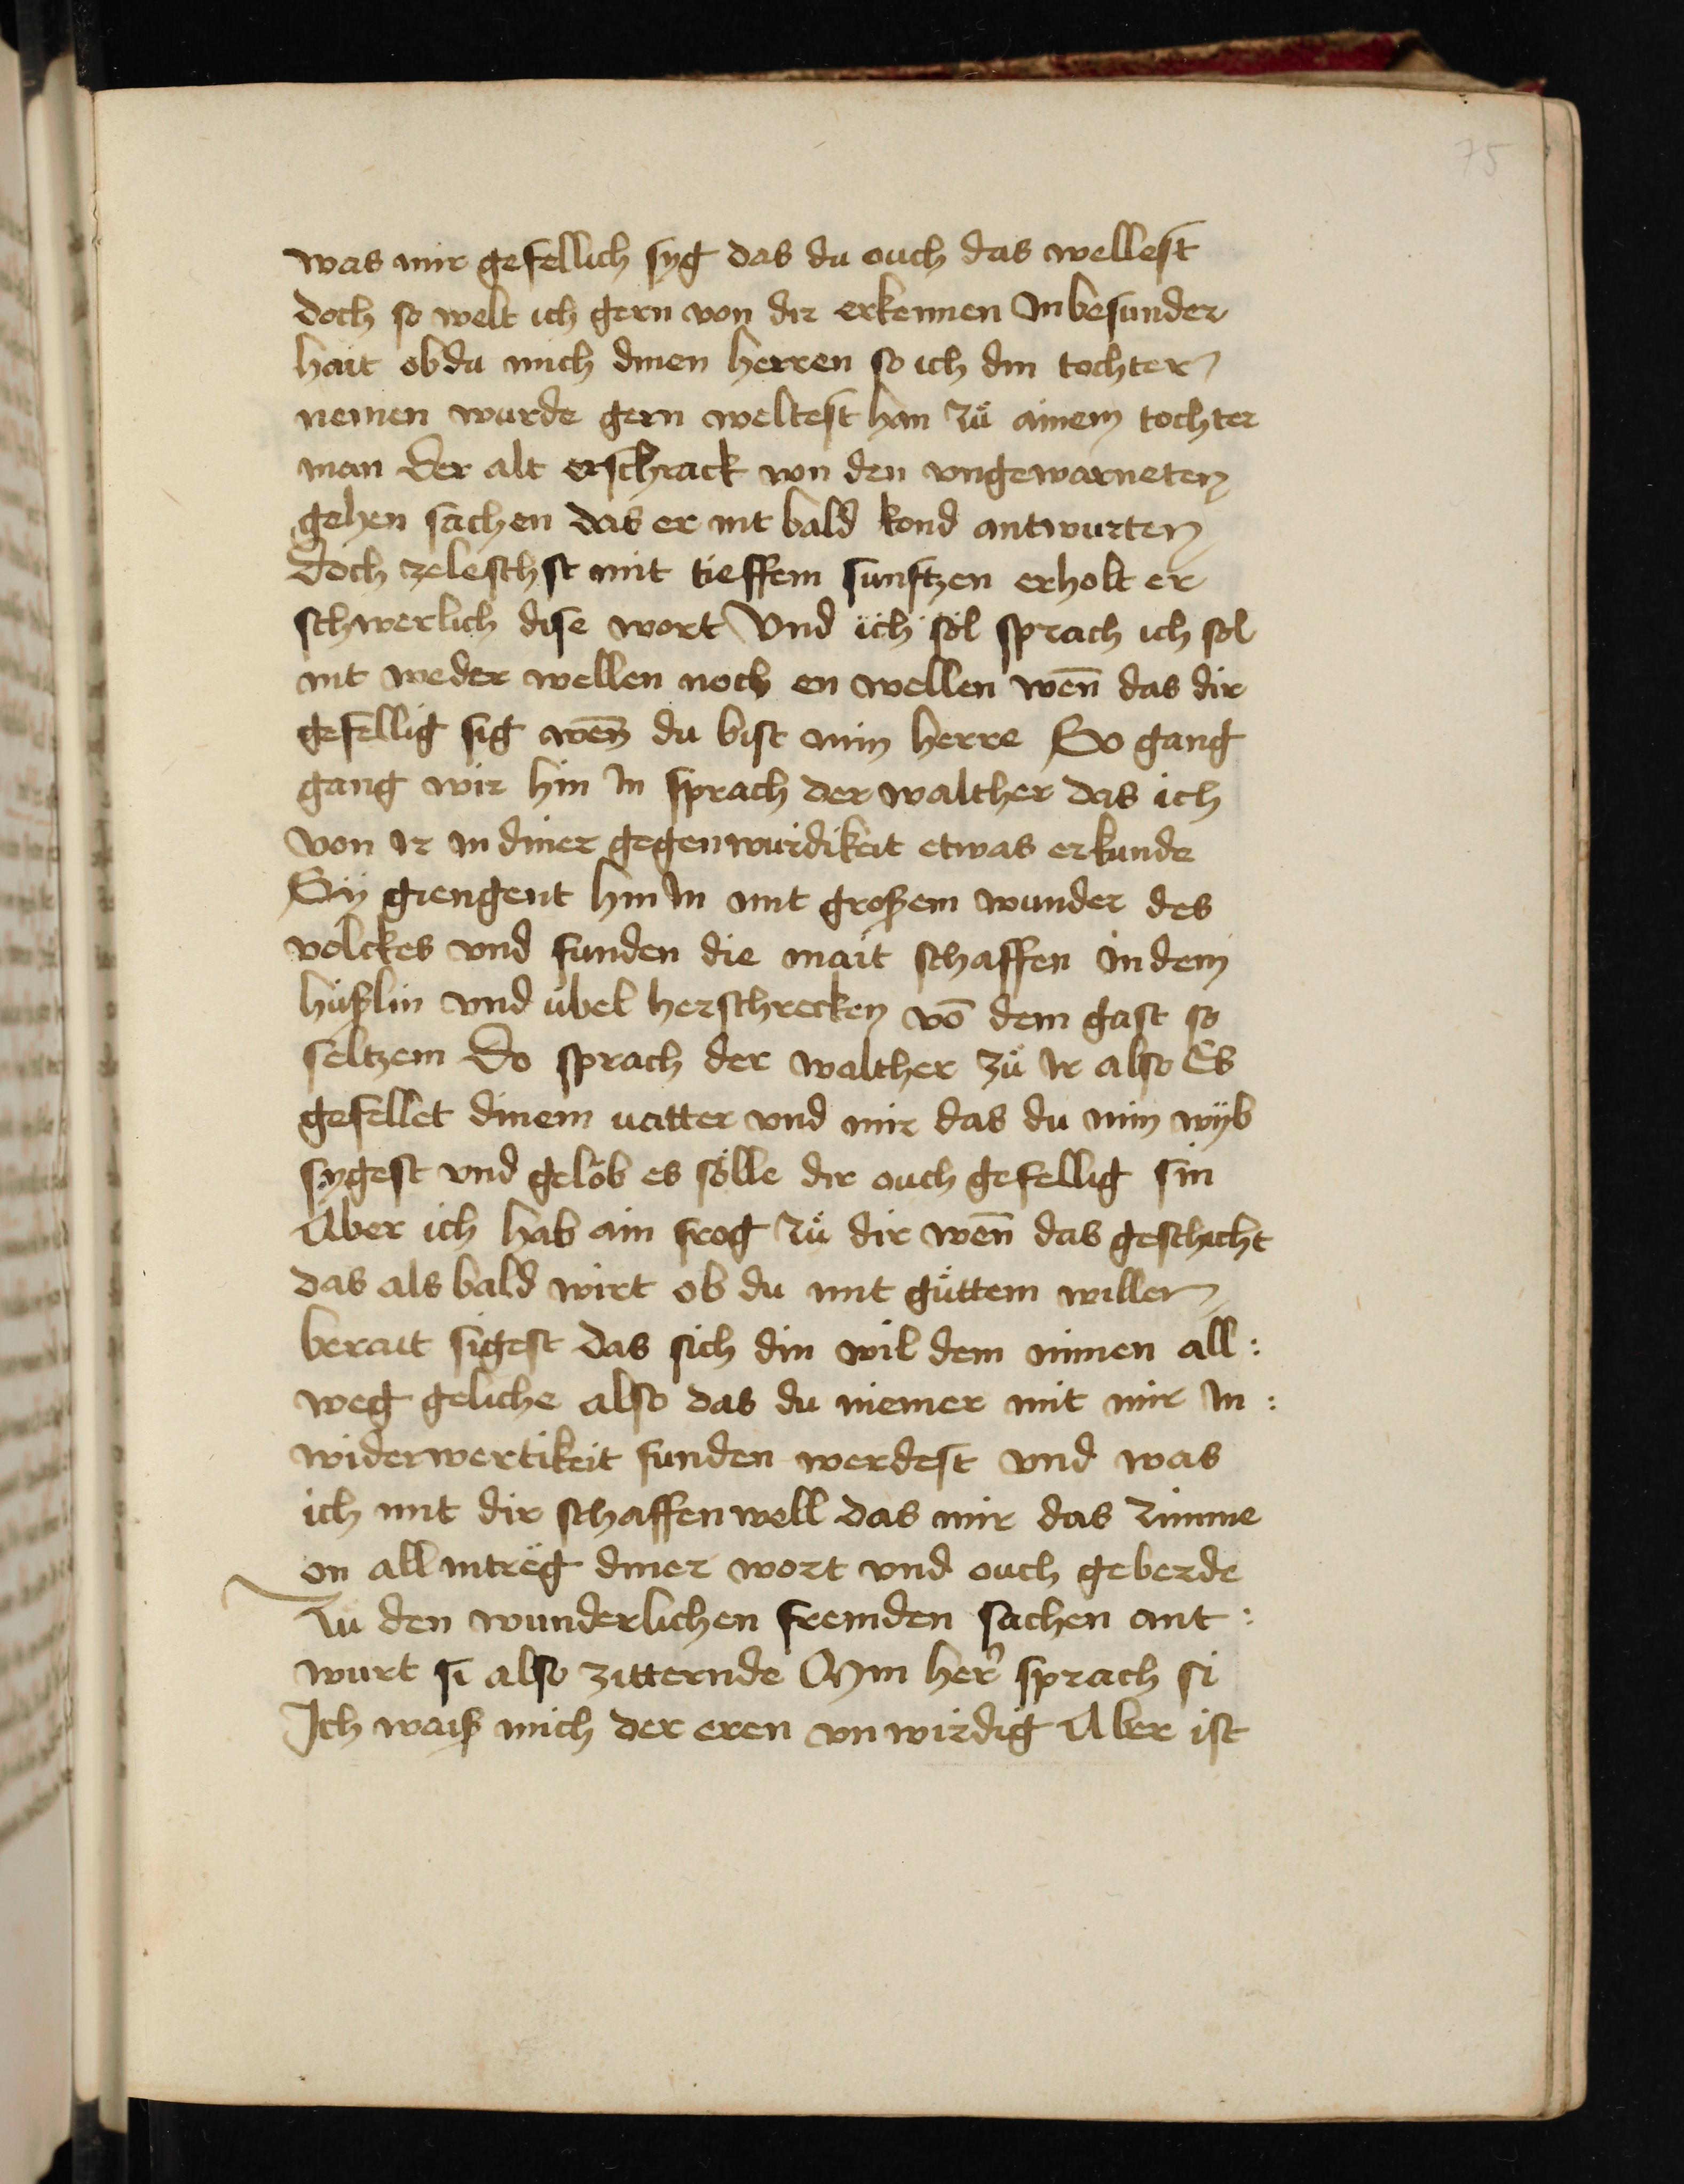 75
was mir gefellich syg das du ouch das wellest
doch so welt ich gern von dir erkennen In besunder
hait ob du mich dinen herren so ich din tochter
nemen wurde gern weltest han zů ainem tochter
man Der alt erschrack von den vngewarneten
gehen sachen das er nit bald kond antwurten
Doch zeleschst mit tieffem sunftzen erholt er
schwerlich dise wort Vnd ich sol sprach ich sol
nit weder wellen noch en wellen wen̄ das dir
gefellig sig wen̄ du bist min herre So gang
gang wir hin In sprach der walther das ich
von Ir In diner gegenwurdikeit etwas erkunde
Sÿ giengent hin In mit großem wunder des
volckes vnd funden die mait schaffen In dem
hüßlin vnd übel herschrecken vō dem gast so
seltzem Do sprach der walther zů Ir also Es
gefellet dinem vatter vnd mir das du min wÿb
sygest vnd gelöb es sölle dir ouch gefellig sin
Aber ich hab ain frog zů dir wen̄ das geschicht
das als bald wirt ob du mit gůttem willen
berait sigest das sich din wil dem minen all :
weg geliche also das du niemer mit mir In :
widerwertikeit funden werdest vnd was
ich mit dir schaffen well das mir das zimme
on all intrëg diner wort vnd ouch geberde
Zu den wunderlichen fremden sachen ant :
wurt si also zitternde Min her̄ sprach si
Ich waiß mich der eren vnwirdig Aber ist